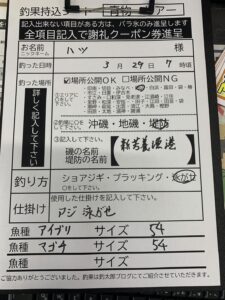 釣果持込
記入出来ない項目がある方は、バラ氷のみ進呈します
全項目記入で謝礼クーポン券進呈
お名前 ハツ 様
ニックネーム
釣った日時 3月29日7時頃
釣った場所 ☑場所公開OK □場所公開NG
詳しく記入して下さい
②場所に○をして下さい 沖磯・地磯・堤防
③記入して下さい
磯の名前
堤防の名前
釣り方 ショアジギ・プラッキング・泳がせ
○をして下さい
仕掛け 使用した仕掛けを記入して下さい
アジ 泳がせ
魚種 アイブリ サイズ 54
魚種 マゴチ サイズ 54
魚種 サイズ
ご協力ありがとうございました。釣果は釣太郎ブログにてご紹介させていただきます。